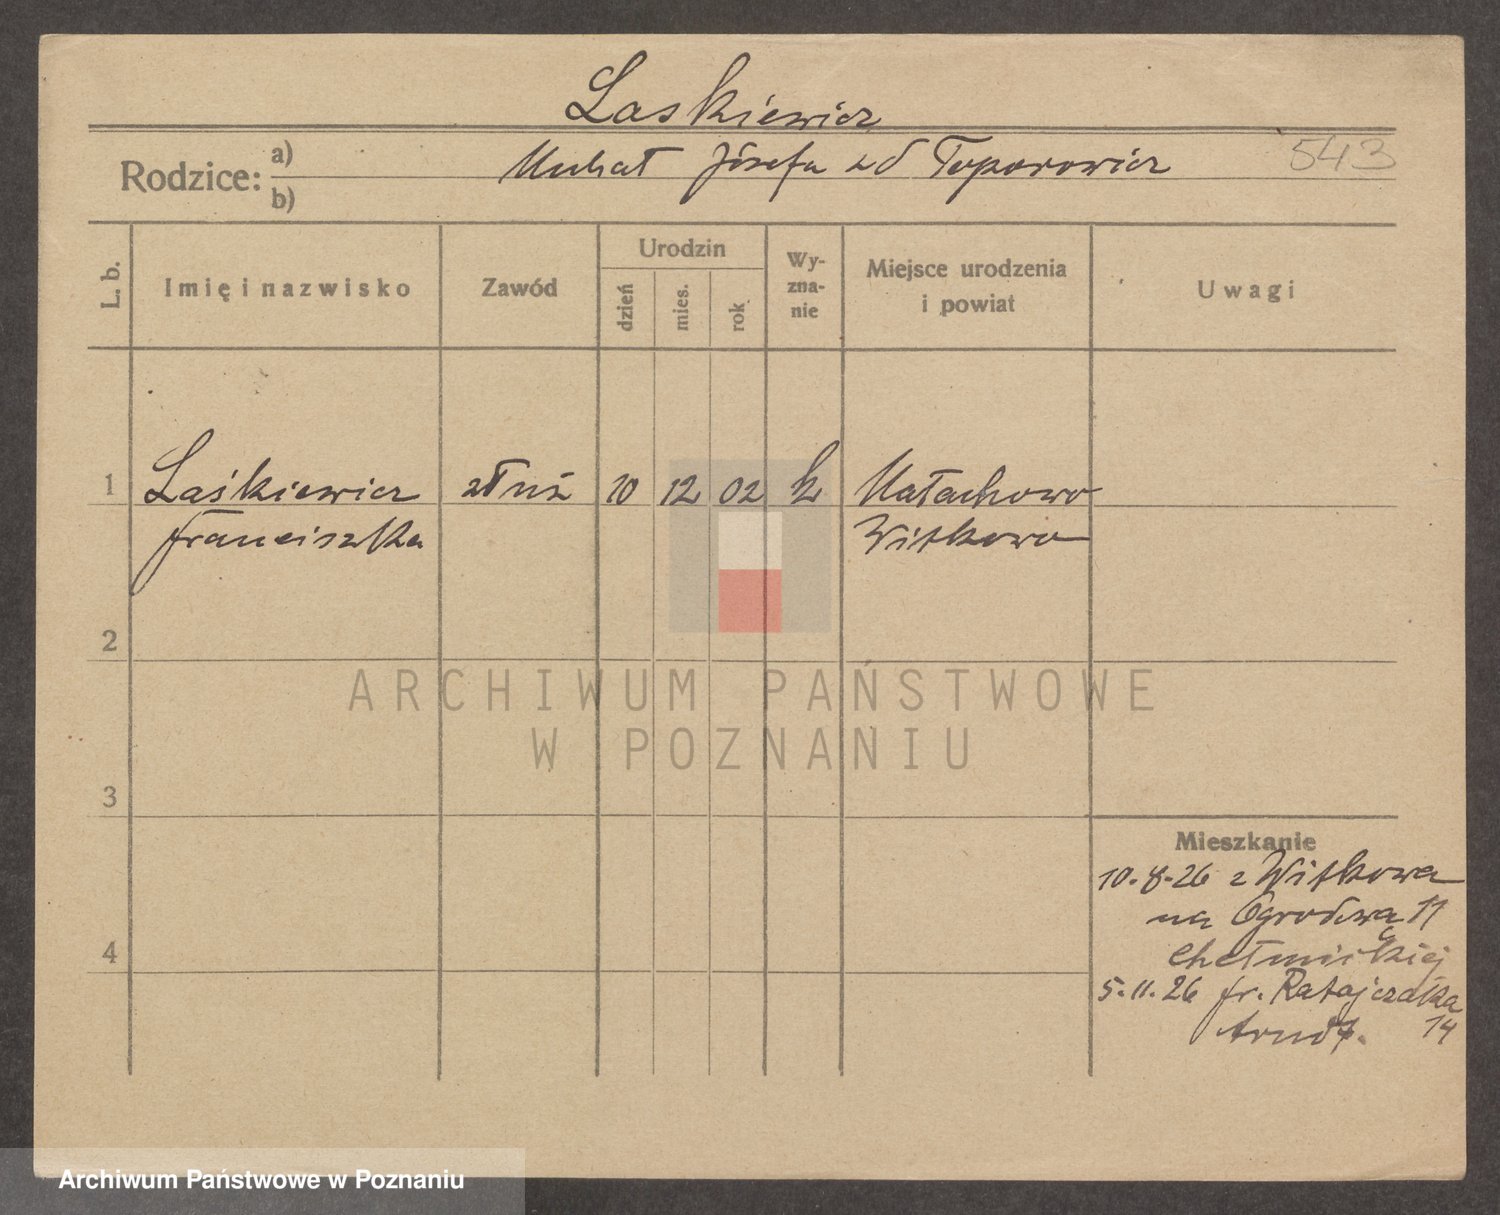 Laskiewicz
Rodzice: a) Michał Józefa zd Toporowicz 543
b)
L. b. Imię i nazwisko Zawód Urodzin dzień mies. rok Wyznanie Miejsce urodzenia i powiat Uwagi
1 Laśkiewicz służ 10 12 02 k Małachowo
Franciszka Witkowo
2
ARCHIWUM PAŃSTWOWE
W POZNANIU
3
Mieszkanie
10.8.26 z Witkowa
na Ogrodowa 11
4
5.11.26 fr. Ratajczaka
Arndt. 14
Archiwum Państwowe w Poznaniu